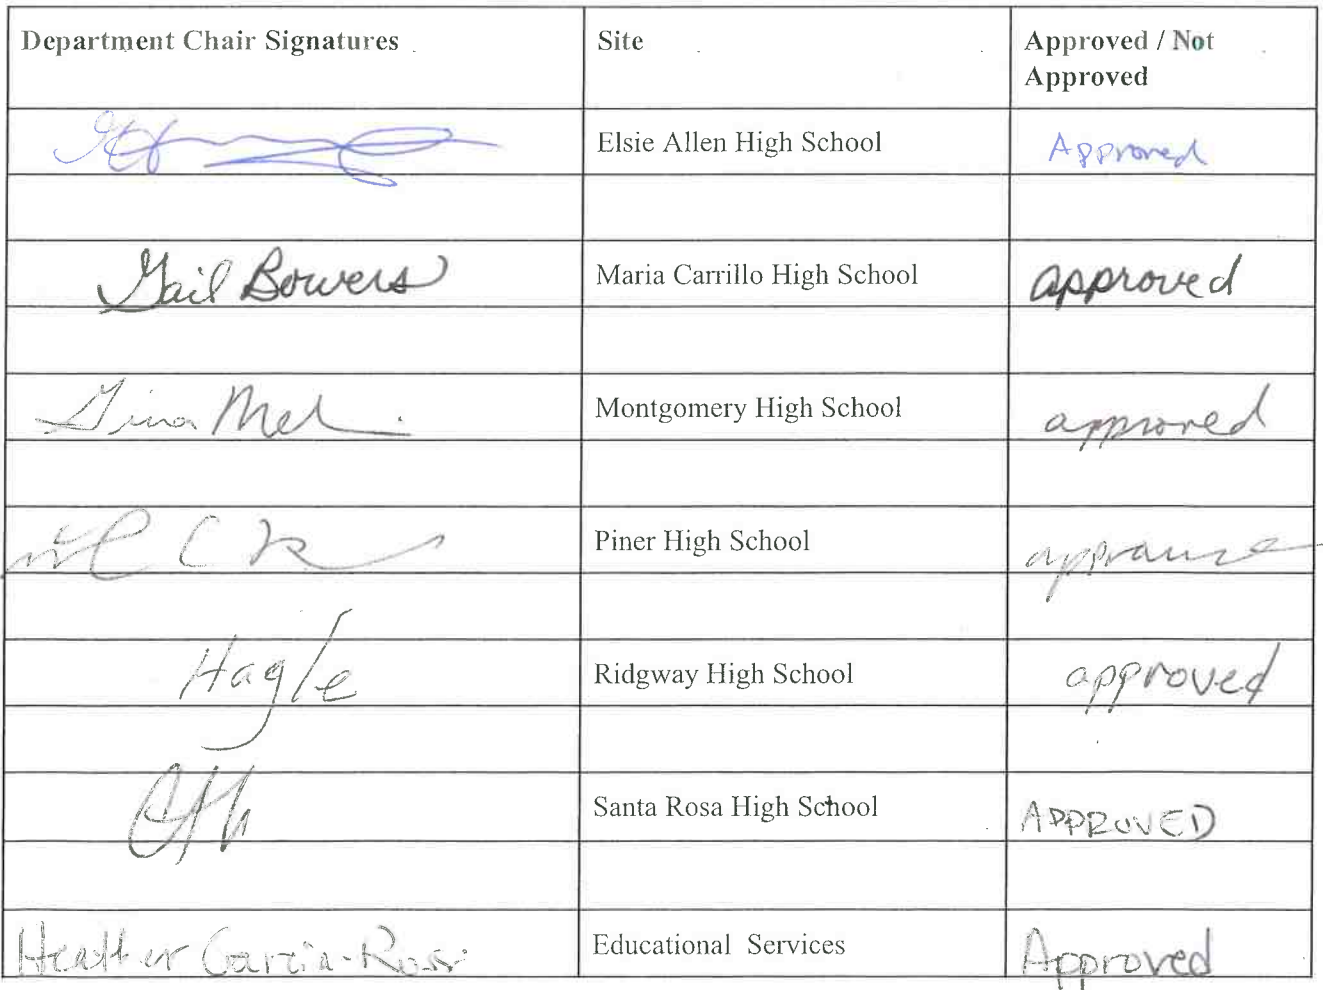 Department Chair Signatures Site Approved / Not
Approved
Elsie Allen High School Approved
Gail Bowers Maria Carrillo High School approved
Gina Montgomery High School approved
Piner High School
Hagle Ridgway High School approved
Santa Rosa High School APPROVED
Heather Garcia-Rossi Educational Services Approved